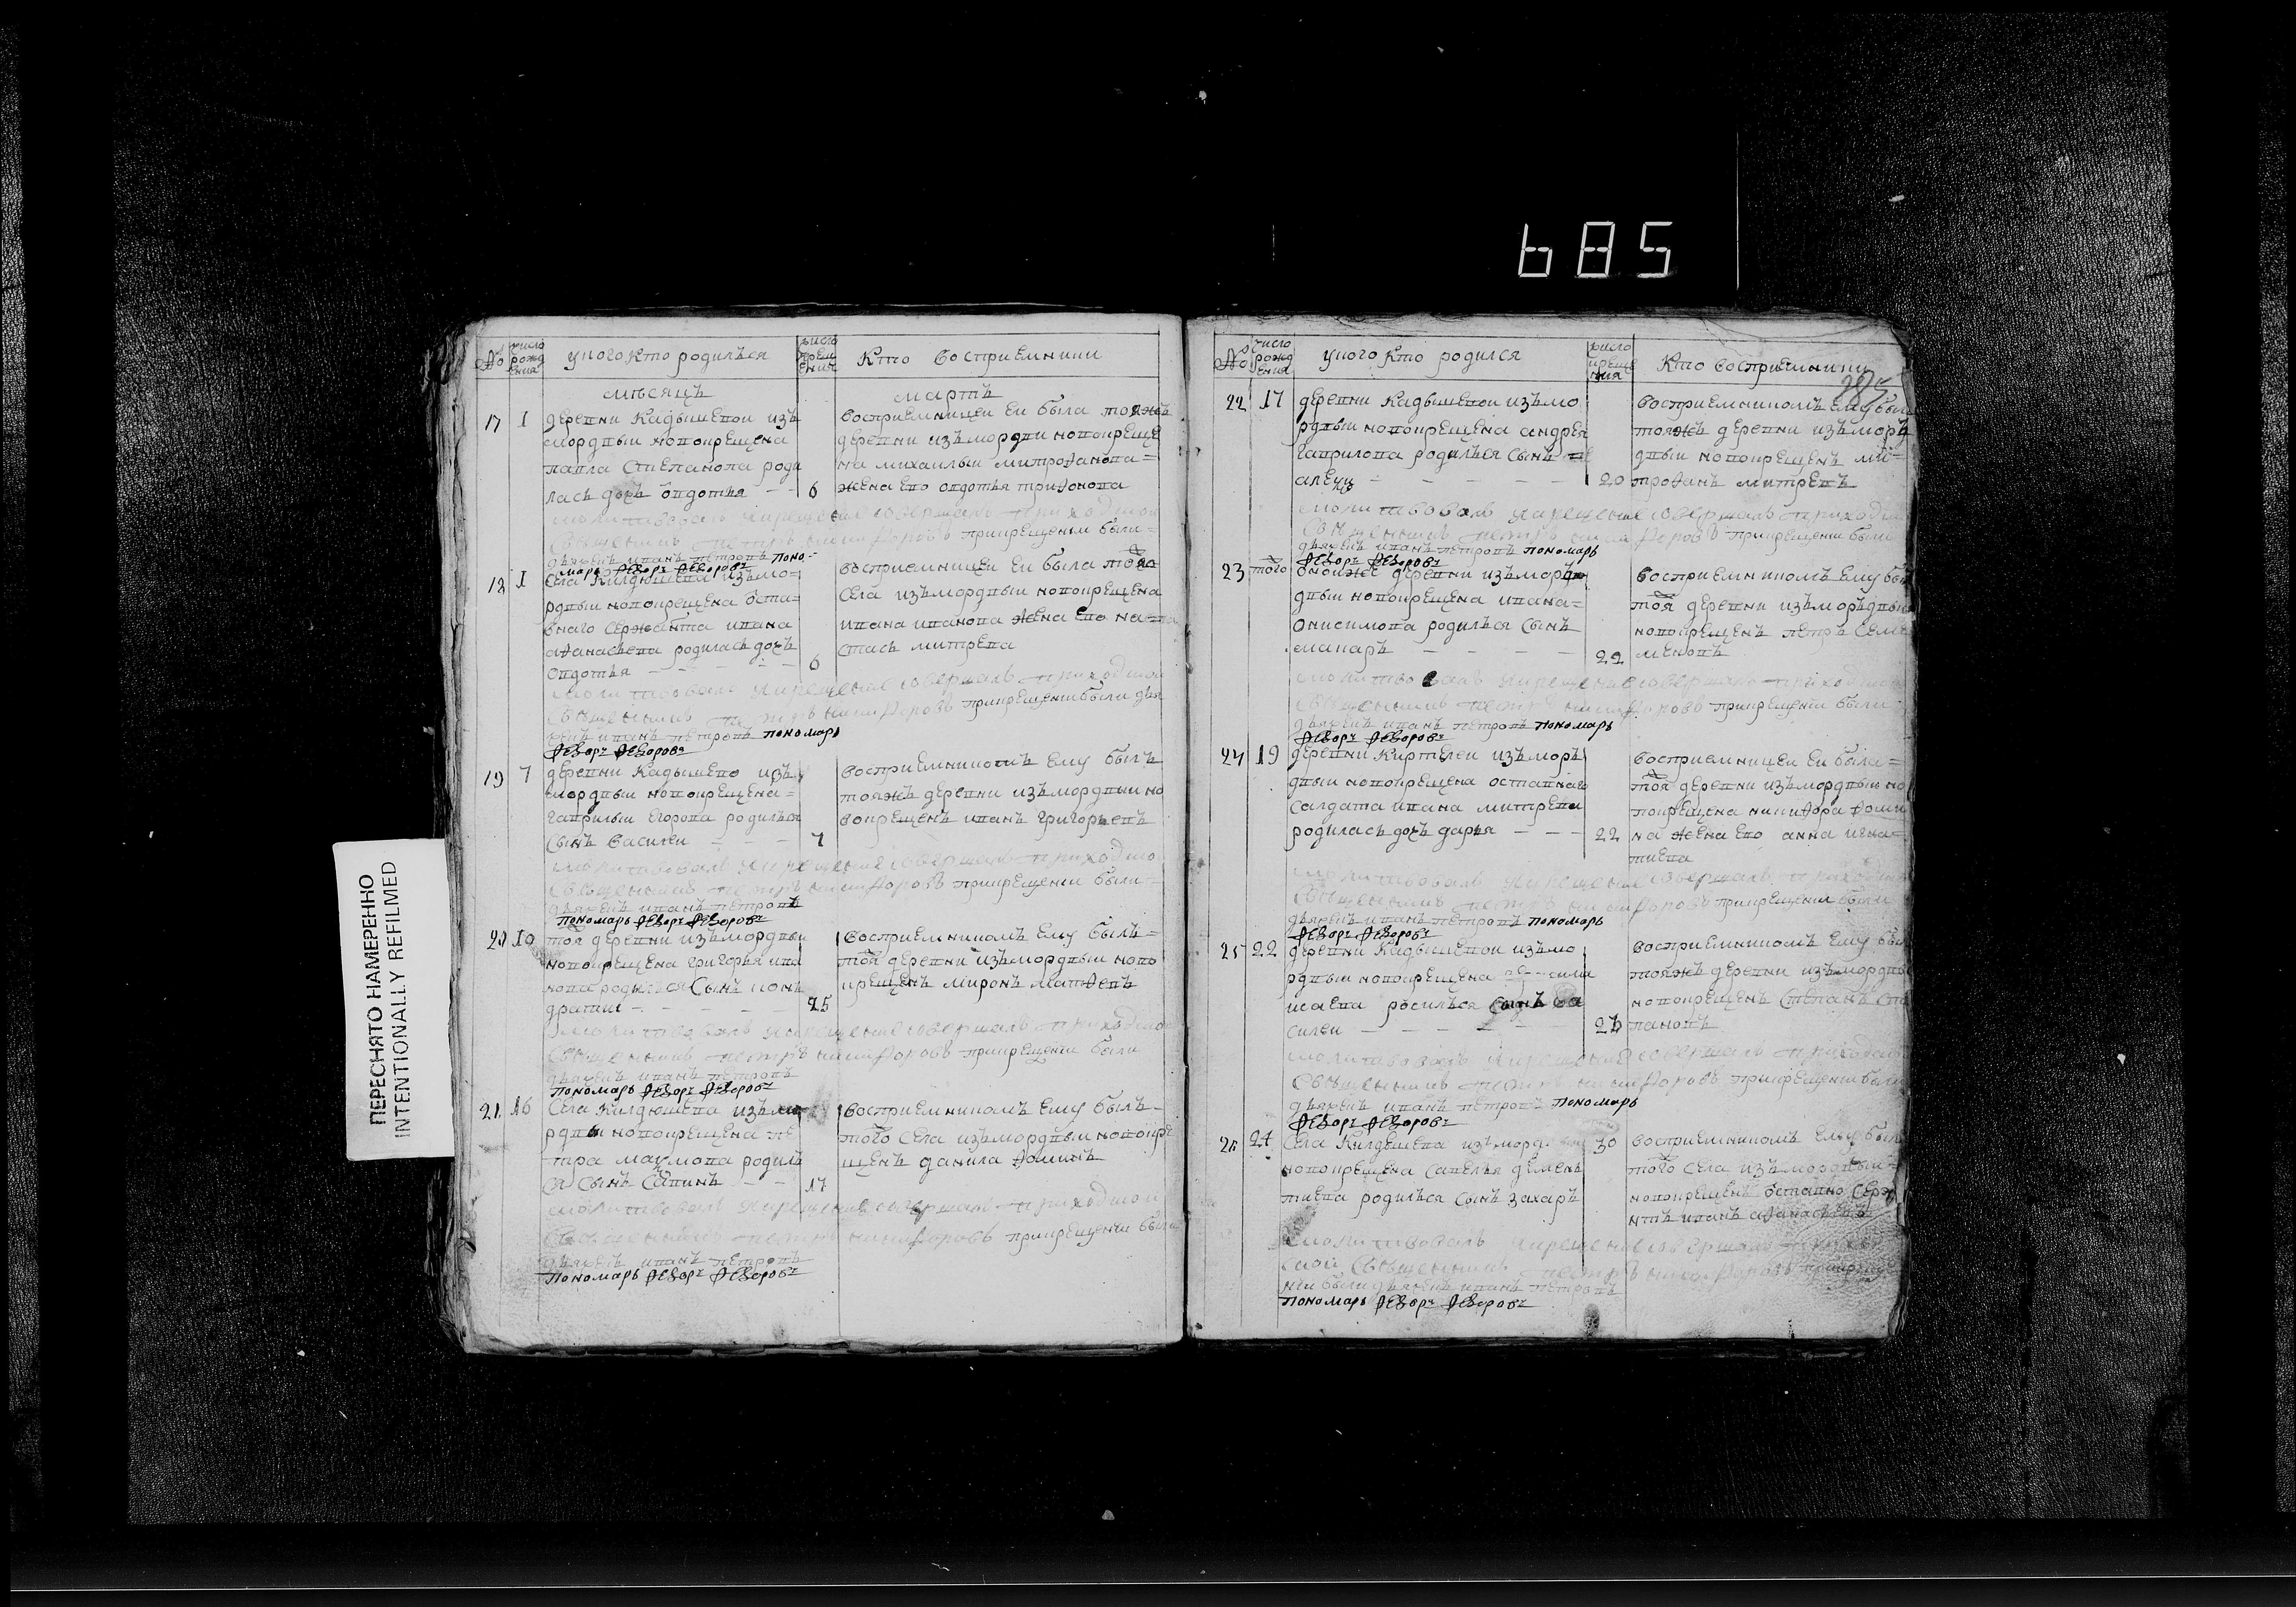 685
ПЕРЕСНЯТО НАМЕРЕННО
INTENTIONALLY REFILMED
№ число рождения
у кого кто родилъся
число крещения
кто восприемники
месяцъ
мартъ
17 1
деревни Кадышевои изъ
мордвы новокрещена
павла Степанова роди
лась дочь овдотья 6
восприемницеи еи была тояжъ
деревни изъ мордвы новокреще
на михаилы митрофанова
жена ево овдотья трифонова
молитвовалъ и крещение совершалъ приходскои
священникъ петръ никифоровъ при крещении были
дьячекъ иванъ петровъ поно
марь Федоръ Федоровъ
18 1
села Килдюшева изъ мо
рдвы новокрещена оста
внаго сержанта ивана
афанасьева родилась дочь
овдотья 6
восприемницеи еи была тоя
села изъ мордвы новокрещена
ивана иванова жена ево на
стась митрева
молитвовалъ и крещение совершалъ приходскои
священникъ петръ никифоровъ при крещении были дья
чекъ иванъ петровъ пономарь
Федоръ Федоровъ
19 7
деревни Кадышево изъ
мордвы новокрещена
гаврилы егорова родилъся
сынъ василеи 7
восприемникомъ ему былъ
тояжъ деревни изъ мордвы но
вокрещенъ иванъ григорьевъ
молитвовалъ и крещение совершалъ приходско
священникъ петръ никифоровъ при крещении были
дьячекъ иванъ петровъ
пономарь Федоръ Федоровъ
20 10
тоя деревни изъ мордвы
новокрещена григорья ива
нова родилъся сынъ кон
дратии 25
восприемникомъ ему былъ
тоя деревни изъ мордвы ново
крещенъ миронъ матфевъ
молитвовалъ и крещение совершалъ приходскои
священникъ петръ никифоровъ при крещении были
дьячекъ иванъ петровъ
пономарь Федоръ Федоровъ
21 16
села Килдюшева изъ мо
рдвы новокрещена пе
тра макмова родилъ
ся сынъ савинъ 17
восприемникомъ ему былъ
того села изъ мордвы новокре
щенъ данила фоминъ
молитвовалъ и крещение совершалъ приходскои
священникъ петръ никифоровъ при крещении были
дьячекъ иванъ петровъ
пономарь Федоръ Федоровъ
№ число рождения
у кого кто родился
число крещения
кто восприемники
22 17
деревни Кадышевои изъ мо
рдвы новокрещена андрея
гаврилова родилъся сынъ
алекси 20
восприемникомъ ему былъ
тояжъ деревни изъ морд
двы новокрещенъ ми
трофанъ митревъ
молитвовалъ и крещение совершалъ приходскои
священникъ петръ никифоровъ при крещении были
дьячекъ иванъ петровъ пономарь
Федоръ Федоровъ
23 того
оноиже деревни изъ мор
двы новокрещена ивана
онисимова родилъся сынъ
макаръ 22
восприемникомъ ему былъ
тоя деревни изъ моръдвы
новокрещенъ петръ семе
меновъ
молитвовалъ и крещение совершалъ приходскои
священникъ петръ никифоровъ при крещении были
дьячекъ иванъ петровъ пономарь
Федоръ Федоровъ
24 19
деревни Киртелеи изъ моръ
двы новокрещена оставнаго
салдата ивана митрева
родилась дочь дарья 22
восприемницеи еи была
тоя деревни изъ мордвы но
вокрещена никифора фоми
на жена ево анна игна
тиева
молитвовалъ и крещение совершалъ приходскои
священникъ петръ никифоровъ при крещении были
дьячекъ иванъ петровъ пономарь
Федоръ Федоровъ
25 22
деревни Кадышевои изъ мо
рдвы новокрещена
исаева росилъся сынъ ва
силеи
восприемникомъ ему былъ
тояжъ деревни изъ мордвы
новокрещенъ степанъ сте
пановъ
молитвовалъ и крещение совершалъ приходскои
священникъ петръ никифоровъ при крещении были
дьячекъ иванъ петровъ пономарь
Федоръ Федоровъ
27
села Килдешева изъ морд 30
новокрещена савелья демень
тиева родилъся сынъ захаръ
восприемникомъ ему былъ
того села изъ мордвы
новокрещенъ оставно сержа
нтъ иванъ афанасьевъ
молитвовалъ и крещение совершалъ приход
скои священникъ петръ никифоровъ при креще
нии были дьячекъ иванъ петровъ
пономарь Федоръ Федоровъ